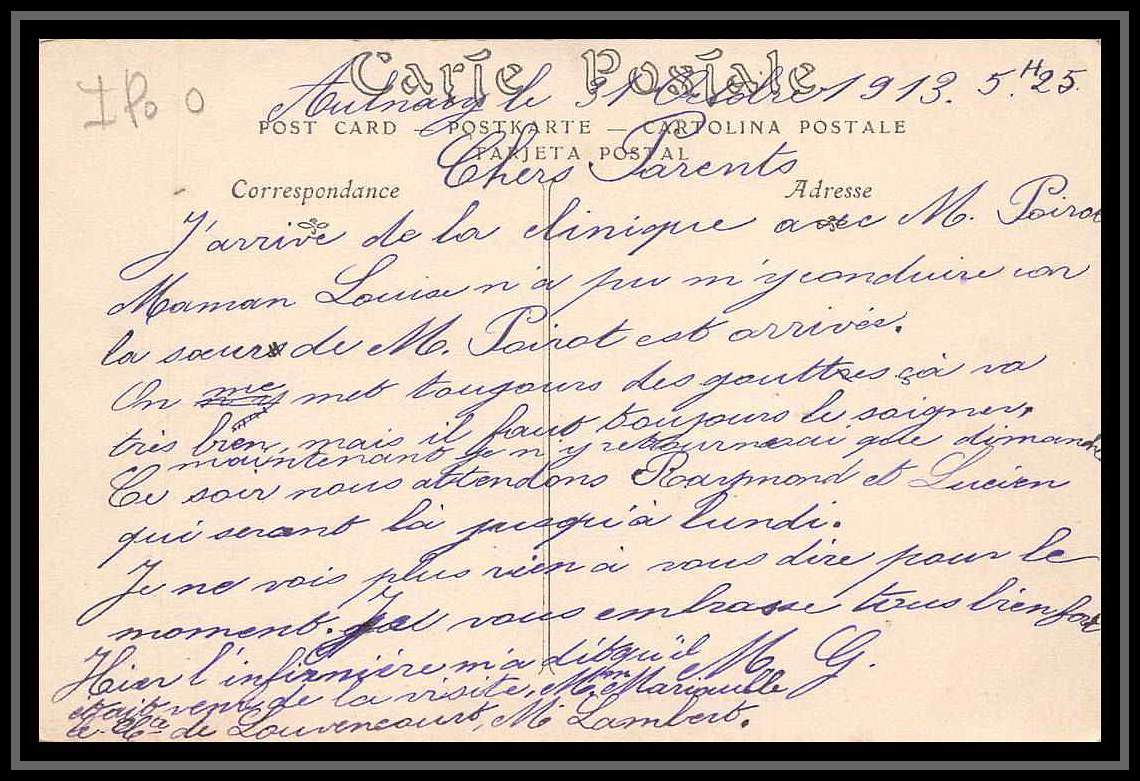 Carte Postale
Aulnay le 31 Octobre 1913. 5.H25.
POST CARD — POSTKARTE — CARTOLINA POSTALE
TARJETA POSTAL
Chers Parents
Correspondance
Adresse
J'arrive de la clinique avec M. Poirot
Maman Louise n'a pu m'y conduire car
la sœur de M. Poirot est arrivée.
On me met toujours des gouttes çà va
très bien, mais il faut toujours le soigner,
maintenant je n'y retournerai que dimanche
Ce soir nous attendons Raymond et Lucien
qui seront là jusqu'à lundi.
Je ne vois plus rien à vous dire pour le
moment. Je vous embrasse tous bien fort
M G.
Hier l'infirmière m'a dit qu'il
était venu de la visite, Mme
de Louvencourt, M. Lambert.